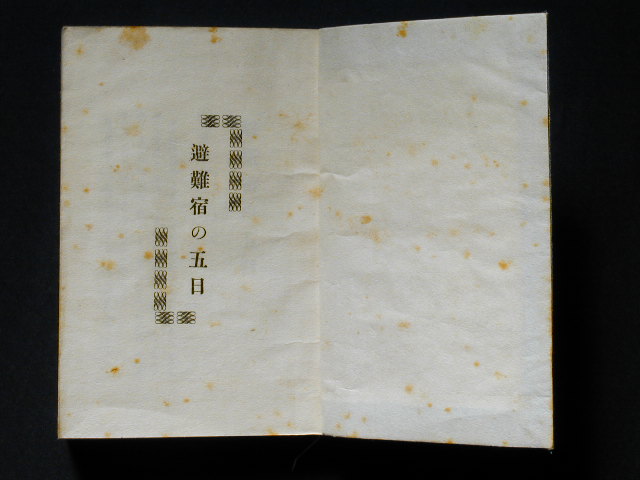 避難宿の五日